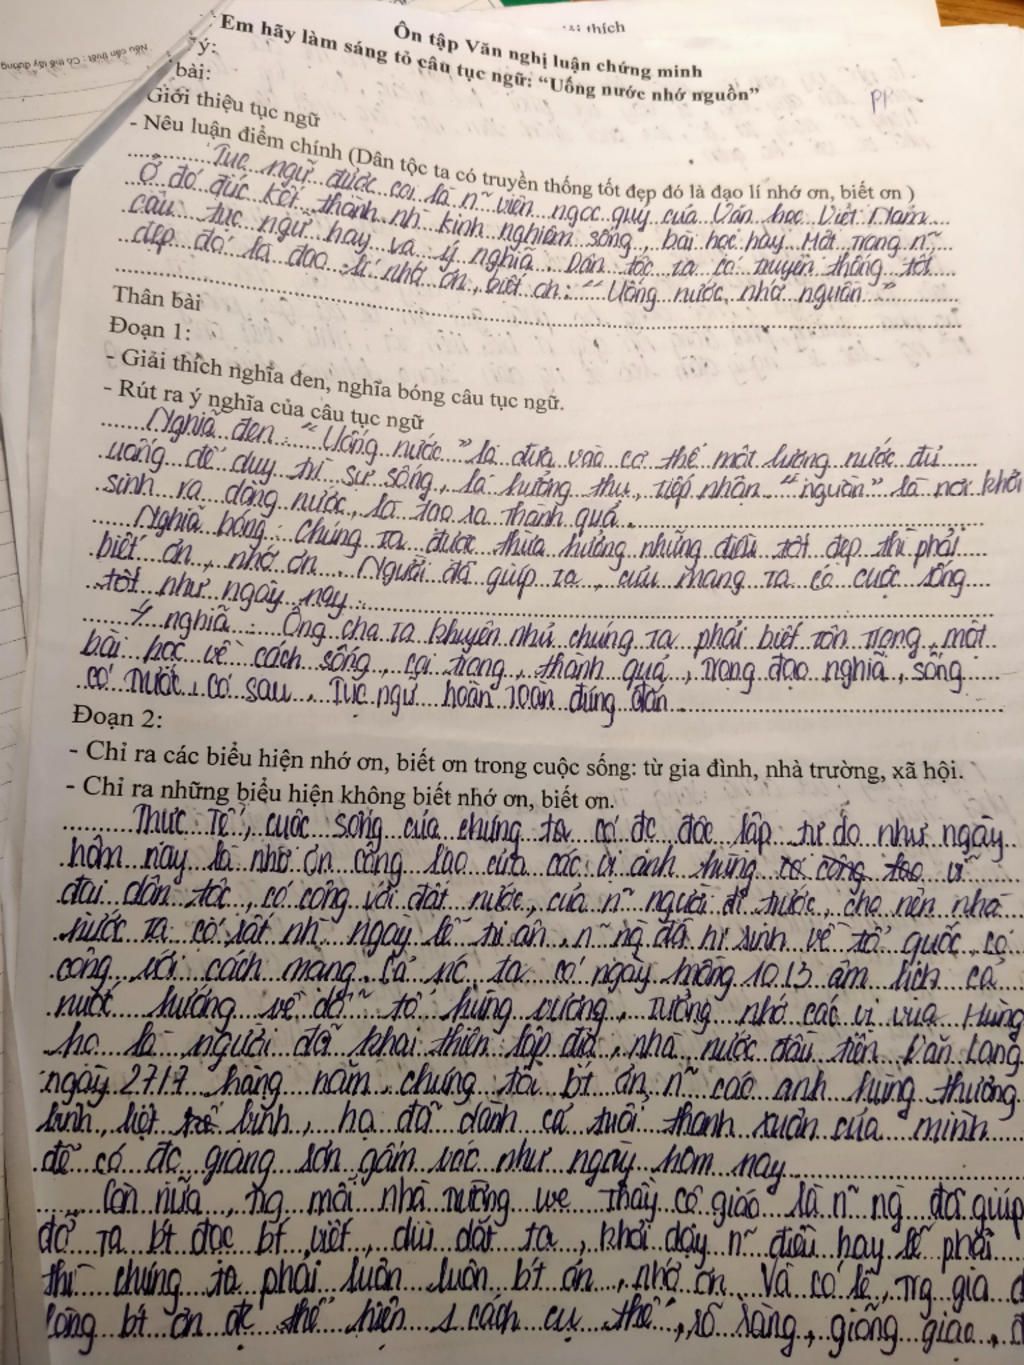 thích
Ôn tập Văn nghị luận chứng minh
Em hãy làm sáng tỏ câu tục ngữ: “Uống nước nhớ nguồn”
ý:
bài:
Giới thiệu tục ngữ
- Nêu luận điểm chính (Dân tộc ta có truyền thống tốt đẹp đó là đạo lí nhớ ơn, biết ơn )
Tục ngữ được coi là n~ viên ngọc quý của Văn học Việt Nam
Ở đó đúc kết thành nh kinh nghiệm sống, bài học hay. Một trong n~
câu tục ngữ hay và ý nghĩa. Dân tộc ta có truyền thống tốt
đẹp đó là đạo lí nhớ ơn, biết ơn: “Uống nước nhớ nguồn”
Thân bài
Đoạn 1:
- Giải thích nghĩa đen, nghĩa bóng câu tục ngữ.
- Rút ra ý nghĩa của câu tục ngữ
Nghĩa đen: “Uống nước” là đưa vào cơ thể một lượng nước đủ
uống để duy trì sự sống, là hưởng thụ, tiếp nhận. “nguồn” là nơi khởi
sinh ra dòng nước, là tạo ra thành quả.
Nghĩa bóng: Chúng ta được thừa hưởng những điều tốt đẹp thì phải
biết ơn, nhớ ơn. Người đã giúp ta, cưu mang ta có cuộc sống
tốt như ngày nay.
Ý nghĩa: Ông cha ta khuyên nhủ chúng ta phải biết tôn trọng một
bài học về cách sống, coi trọng, thành quả, trọng đạo nghĩa, sống
có trước, có sau. Tục ngữ hoàn toàn đúng đắn.
Đoạn 2:
- Chỉ ra các biểu hiện nhớ ơn, biết ơn trong cuộc sống: từ gia đình, nhà trường, xã hội.
- Chỉ ra những biểu hiện không biết nhớ ơn, biết ơn.
Thực tế, cuộc sống của chúng ta có đc độc lập tự do như ngày
hôm nay là nhờ ơn công lao của các vị anh hùng có công lao vĩ
đại dân tộc, có công với đất nước, của n~ người đi trước, cho nên nhà
nước ta có rất nh ngày lễ tri ân n~ ng đã hi sinh về tổ quốc có
công với cách mạng. Cả nc ta có ngày mồng 10.13 âm lịch cả
nước hướng về đất tổ hùng vương, tưởng nhớ các vị vua Hùng
họ là người đã khai thiên lập địa, nhà nước đầu tiên Văn Lang
ngày 27.17 hàng năm, chúng tôi bt ơn n~ các anh hùng thương
binh, liệt binh, họ đã dành cả tuổi thanh xuân của mình
để có đc giang sơn gấm vóc như ngày hôm nay
Còn nữa, trg mái nhà trường thầy cô giáo là n~ ng đã giúp
đỡ ta bt đọc bt viết, dìu dắt ta, khơi dậy n~ điều hay lẽ phải
thì chúng ta phải luôn luôn bt ơn, nhớ ơn. Và có lẽ, trg gia
lòng bt ơn đc thể hiện 1 cách cụ thể, rõ ràng, giống giao,